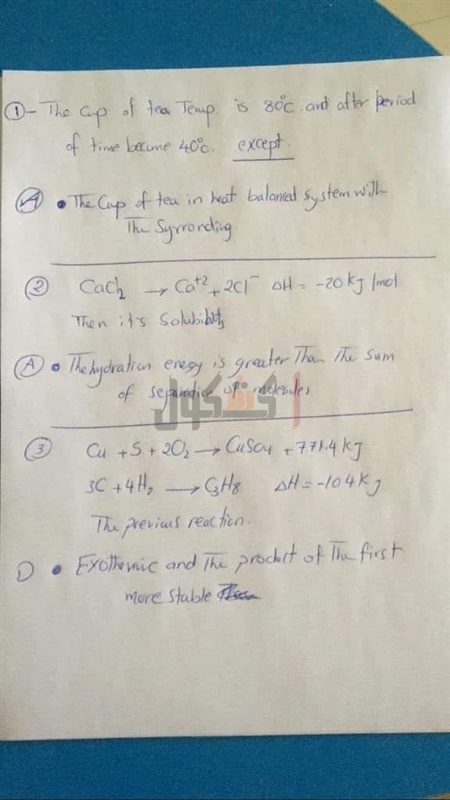 ① - The Cup of tea Temp. is 80°c. and after period
of time became 40°c. except.
Ⓐ • The Cup of tea in heat balanced system with
The Syrronding
② CaCl2 → Ca+2 + 2Cl- ΔH = -20 kJ /mol
Then it's Solubility
Ⓐ • The hydration energy is greater Than The Sum
of separation of molecules
كشكول
③ Cu + S + 2O2 → CuSO4 + 771.4 kJ
3C + 4H2 → C3H8 ΔH = -104 kJ
The previous reaction.
D • Exothemic and The prodect of The first
more stable